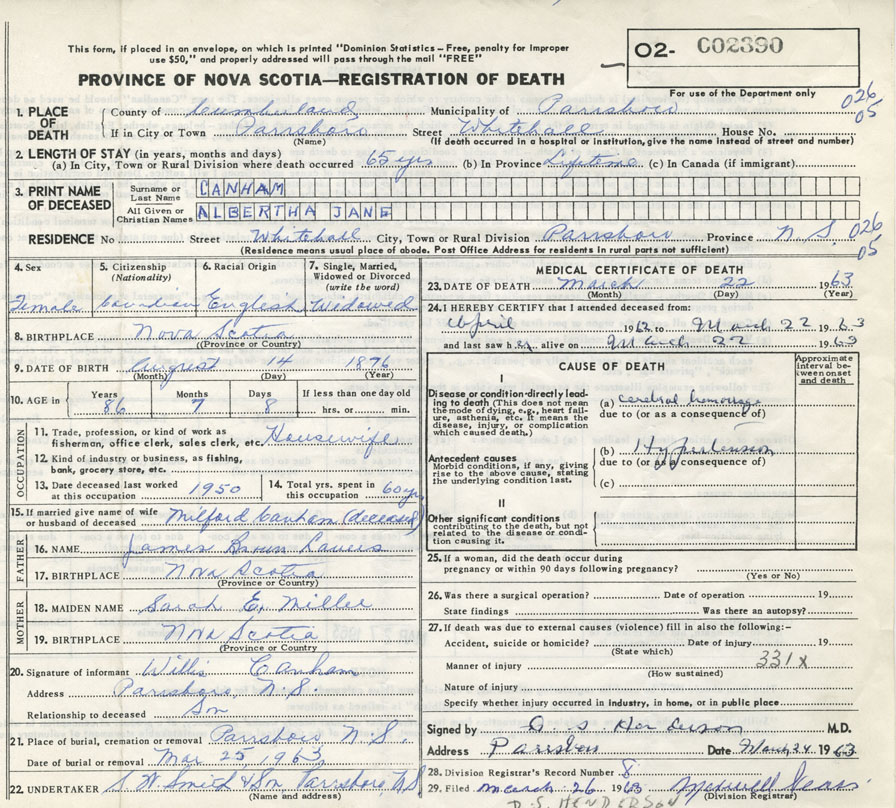 This form, if placed in an envelope, on which is printed "Dominion Statistics – Free, penalty for improper
use $50," and properly addressed will pass through the mail "FREE"
O2- C02390
PROVINCE OF NOVA SCOTIA—REGISTRATION OF DEATH
For use of the Department only
026
05
1. PLACE OF DEATH
County of Cumberland Municipality of Parrsboro
If in City or Town Parrsboro Street Whitehall House No.
(Name) (If death occurred in a hospital or institution, give the name instead of street and number)
2. LENGTH OF STAY (in years, months and days)
(a) In City, Town or Rural Division where death occurred 65 yrs (b) In Province Lifetime (c) In Canada (if immigrant)
3. PRINT NAME OF DECEASED
Surname or Last Name CANHAM
All Given or Christian Names ALBERTHA JANE
RESIDENCE No. Street Whitehall City, Town or Rural Division Parrsboro Province N.S.
026
05
(Residence means usual place of abode. Post Office Address for residents in rural parts not sufficient)
4. Sex
Female
5. Citizenship (Nationality)
Canadian
6. Racial Origin
English
7. Single, Married, Widowed or Divorced (write the word)
Widowed
8. BIRTHPLACE Nova Scotia
(Province or Country)
9. DATE OF BIRTH August 14 1876
(Month) (Day) (Year)
10. AGE in Years Months Days If less than one day old
86 7 8 hrs. or min.
OCCUPATION
11. Trade, profession, or kind of work as
fisherman, office clerk, sales clerk, etc. Housewife
12. Kind of industry or business, as fishing,
bank, grocery store, etc.
13. Date deceased last worked at this occupation 1950
14. Total yrs. spent in this occupation 60 yrs
15. If married give name of wife
or husband of deceased Milford Canham (deceased)
FATHER
16. NAME James Brown
17. BIRTHPLACE Nova Scotia
(Province or Country)
MOTHER
18. MAIDEN NAME Sarah E. Miller
19. BIRTHPLACE Nova Scotia
(Province or Country
20. Signature of informant Willis Canham
Address Parrsboro, N.S.
Relationship to deceased Son
21. Place of burial, cremation or removal Parrsboro N.S.
Date of burial or removal Mar 25, 1963
22. UNDERTAKER W Smith & Son Parrsboro NS
(Name and address)
MEDICAL CERTIFICATE OF DEATH
23. DATE OF DEATH March 22 1963
(Month) (Day) (Year)
24. I HEREBY CERTIFY that I attended deceased from:
April 1962 to March 22 1963
and last saw her alive on March 22 1963
CAUSE OF DEATH
Approximate interval between onset and death
I
Disease or condition-directly leading
to death (This does not mean
the mode of dying, e.g., heart failure,
asthenia, etc. It means the
disease, injury, or complication
which caused death.)
(a) cerebral hemorrhage
due to (or as a consequence of)
Antecedent causes
Morbid conditions, if any, giving
rise to the above cause, stating
the underlying condition last.
(b) Hypertension
due to (or as consequence of)
(c)
II
Other significant conditions
contributing to the death, but not
related to the disease or condition
causing it.
25. If a woman, did the death occur during
pregnancy or within 90 days following pregnancy?
(Yes or No)
26. Was there a surgical operation? Date of operation 19
State findings Was there an autopsy?
27. If death was due to external causes (violence) fill in also the following:–
Accident, suicide or homicide? Date of injury 19
(State which)
Manner of injury 331X
(How sustained)
Nature of injury
Specify whether injury occurred in Industry, in home, or in public place
Signed by D. S. Henderson M.D.
Address Parrsboro Date March 24 1963
28. Division Registrar's Record Number 8
29. Filed March 26 1963
(Division Registrar)
D.S. HENDERSON